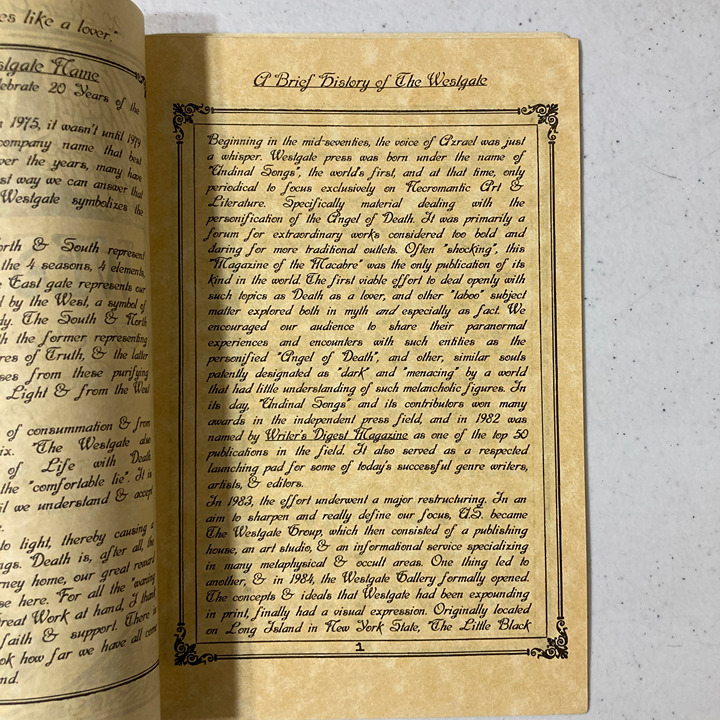 es like a lover."
slgate Name
lebrate 20 Years of the
n 1975, it wasn't until 1979
company name that best
ver the years, many have
st way we can answer that
Westgate symbolizes the
orth & South represent
the 4 seasons, 4 elements,
e East gate represents our
d by the West, a symbol of
dy. The South & North
th the former representing
res of Truth, & the latter
ses from these purifying
Light & from the West
of consummation & from
ix. "The Westgate also
of Life with Death
the "comfortable lie". It is
il we understand & accept
to light, thereby causing a
ngs. "Death is, after all, the
rney home, our great reward
se here. For all the "waning
Great Work at hand, I thank
faith & support. There is
ook how far we have all come
nd.
A Brief History of The Westgate
Beginning in the mid-seventies, the voice of Azrael was just
a whisper. Westgate press was born under the name of
"Undinal Songs", the world's first, and at that time, only
periodical to focus exclusively on Necromantic Art &
Literature. Specifically material dealing with the
personification of the Angel of Death. It was primarily a
forum for extraordinary works considered too bold and
daring for more traditional outlets. Often "shocking", this
"Magazine of the Macabre" was the only publication of its
kind in the world. The first viable effort to deal openly with
such topics as Death as a lover, and other "taboo" subject
matter explored both in myth and especially as fact. We
encouraged our audience to share their paranormal
experiences and encounters with such entities as the
personified "Angel of Death", and other, similar souls
patently designated as "dark" and "menacing" by a world
that had little understanding of such melancholic figures. In
its day, "Undinal Songs" and its contributors won many
awards in the independent press field, and in 1982 was
named by Writer's Digest Magazine as one of the top 50
publications in the field. It also served as a respected
launching pad for some of today's successful genre writers,
artists, & editors.
In 1983, the effort underwent a major restructuring. In an
aim to sharpen and really define our focus, U.S. became
The Westgate Group, which then consisted of a publishing
house, an art studio, & an informational service specializing
in many metaphysical & occult areas. One thing led to
another, & in 1984, the Westgate Gallery formally opened.
The concepts & ideals that Westgate had been expounding
in print, finally had a visual expression. Originally located
on Long Island in New York State, The Little Black
1